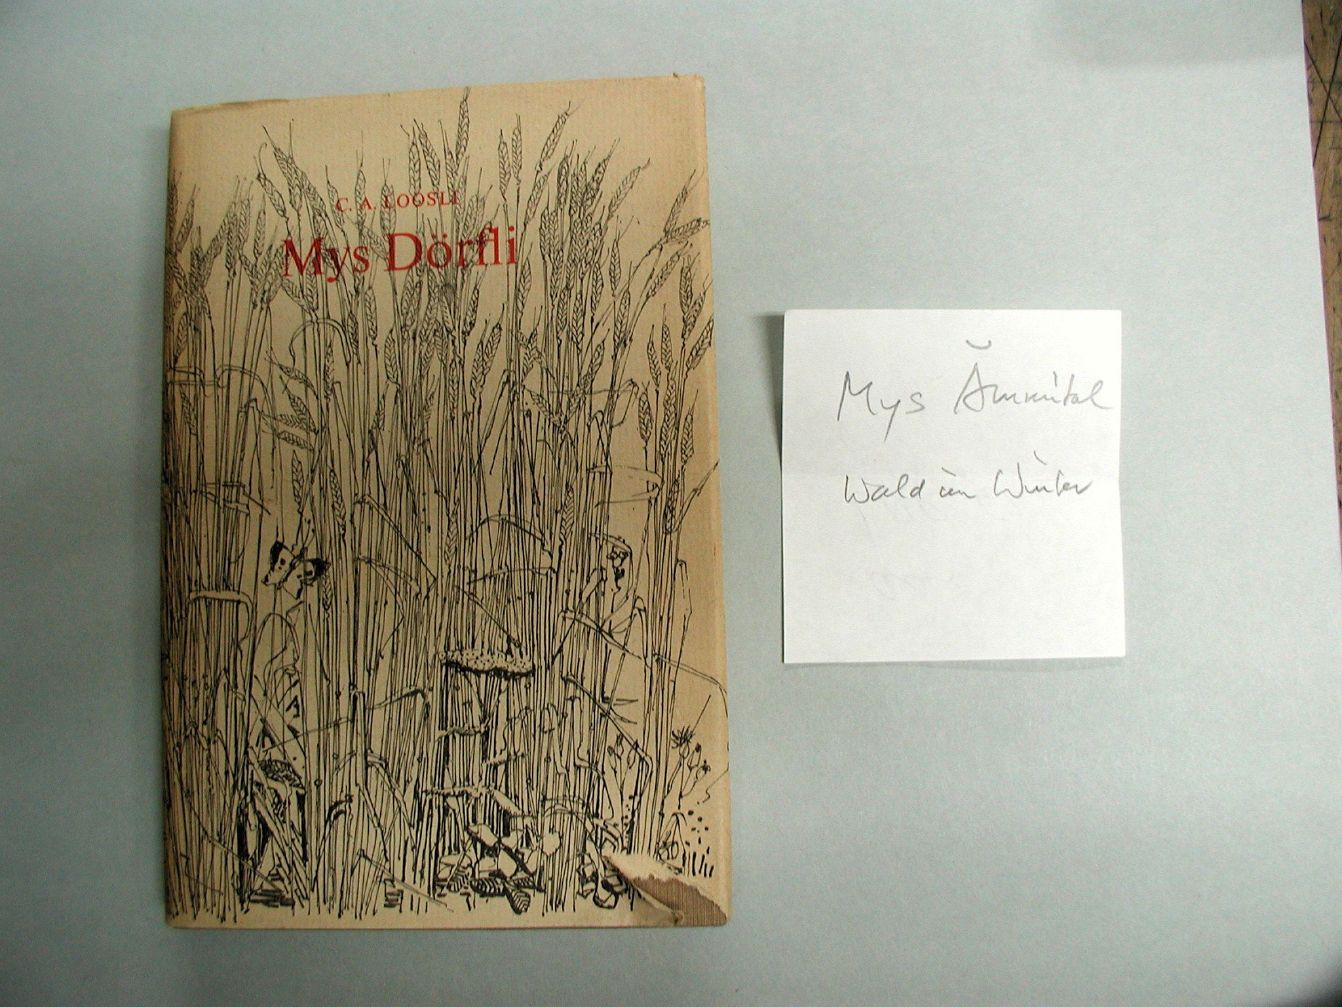 C. A. LOOSLI
Mys Dörfli
Mys Ämmital
Wald im Winter